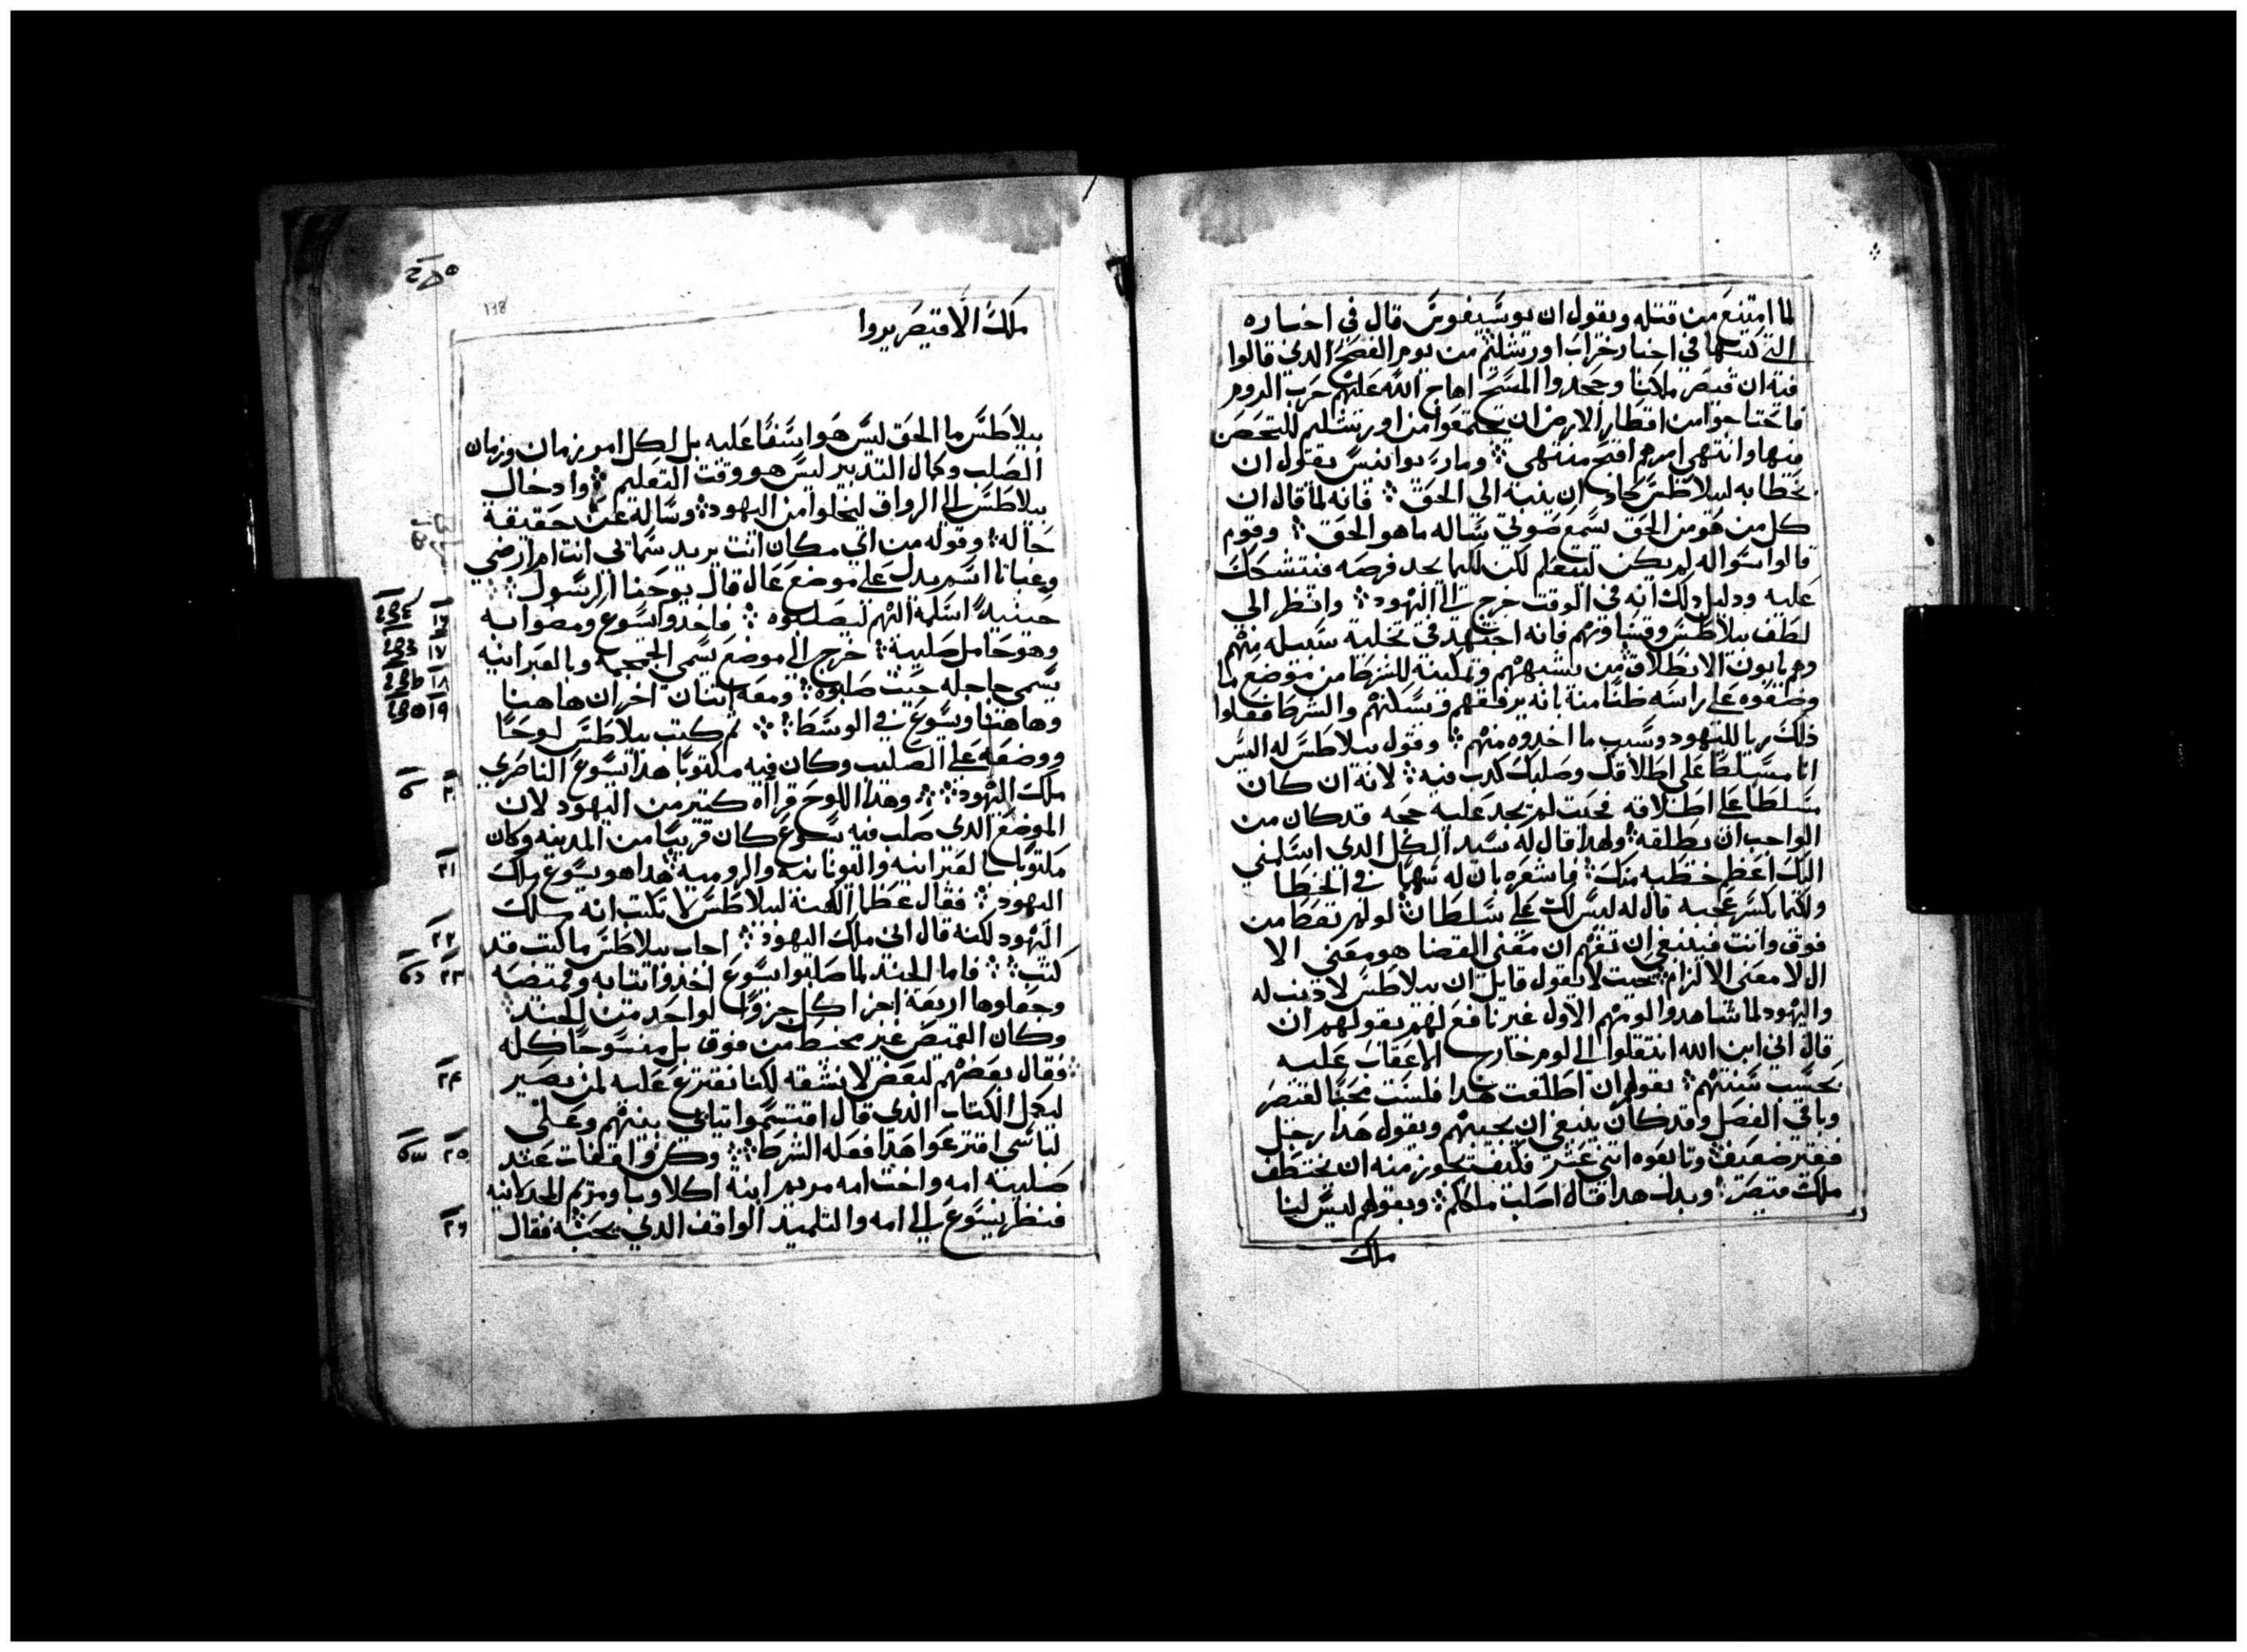 لما امتنع من قتله ويقول ان يوسيفوس قال في اخباره
التي كتبها في اخبار خراب اورشليم من يوم الفصح الدي قالوا
فيه ان قيصر ملكنا وجحدوا المسيح اهاج الله عليهم حرب الروم
فاحتاجوا من اقطار الارض ان يجتمعوا من اورشليم للتحصن
منها وانتهي امرهم اقبح منتهي ومار يوانيس يقول ان
بخطابه لبيلاطس كاد ان ينبه الي الحق فانه لما قال ان
كل من هو من الحق يسمع صوتي ساله ما هو الحق وقوم
قالوا سواله لم يكن ليتعلم لكن لكيما يجد فرصه فيتشحك
عليه ودليل دلك انه في الوقت خرج الي اليهود وانظر الي
لطف بيلاطس وقساوتهم فانه اجتهد في تخلية سبيله منهم
وهم يابون الانطلاق من شبههم وتمكينه للشرط من موضع ما
وضفوه علي راسه ظنا منه بانه يرفقهم ويسكنهم والشرط فعلوا
ذلك ربا لليهود وسبب ما اخدوه منهم وقول بيلاطس له اليس
انا مسلطا علي اطلاقك وصلبك كدب فيه لانه ان كان
مسلطا علي اطلاقه فحيت لم يجد عليه حجه قد كان من
الواجب ان يطلقه ولهدا قال له سيد الكل الدي اسلمني
اليك اعظم خطيه منك فاشعره بان له سهما في الخطا
ولكيما يكسر عجبه قال له ليس لك علي سلطان لو لم تعط من
فوق وانت فينبغي ان تفهم ان معني القضا هو معني الا
ال لا معني الالزام بحيت لا يقول قايل ان بيلاطس لا دنب له
واليهود لما شاهدوا لومهم الاول غير نافع لهم بقولهم ان
قال اني ابن الله انتقلوا الي لوم خارج الاعقاب عليه
بحسب سنتهم بقولهم ان اطلقت هدا فلست محبا لقيصر
وباقي الفصل وقد كان ينبغي ان يجيبهم ويقول هدا رجل
فقير ضعيف وتابعوه اتني عشر فكيف يجوز منه ان يختطف
ملك قيصر وبدل هدا قال اصلب ملككم وبقولهم ليس لنا
ملك
138
ملك الا قيصر يروا
بيلاطس ما الحق ليس هو اسفا عليه بل لكل امر زمان وزمان
الصلب وكمال التدبير ليس هو وقت التعليم وادخال
بيلاطس الي الرواق ليخلوا من اليهود وساله عن حقيقة
حاله وقوله من اي مكان انت يريد سماتي انت ام ارضي
وغباتا اسم يدل علي موضع عال قال يوحنا الرسول
حينيد اسلمه اليهم ليصلبوه فاخدوا يسوع ومضوا به
وهو حامل صليبه خرج الي موضع يسمي الجمجمة وبالعبرانيه
يسمي جاجله حيت صلبوه ومعه اتنان اخران هاهنا
وهاهنا ويسوع في الوسط تم كتب بيلاطس لوحا
ووضعه علي الصليب وكان فيه مكتوبا هدا يسوع الناصري
ملك اليهود وهدا اللوح قراه كتير من اليهود لان
الموضع الدي صلب فيه يسوع كان قريبا من المدينه وكان
مكتوبا بالعبرانيه واليونانيه والروميه هدا هو يسوع ملك
اليهود فقال عظما الكهنة لبيلاطس لا تكتب انه ملك
اليهود لكنه قال اني ملك اليهود اجاب بيلاطس ما كتبت قد
كتبت فاما الجند لما صلبوا يسوع اخدوا تيابه وقميصه
وجعلوها اربعة اجزا كل جزوا لواحد من الجند
وكان القميص غير مخيط من فوق بل منسوجا كله
فقال بعضهم لبعض لا نشقه لكنا نقترع عليه لمن يصير
ليكمل الكتاب الدي قال اقتسموا تيابي بينهم وعلي
لباسي اقترعوا هدا فعله الشرط وكن واقفات عند
صليبه امه واخت امه مريم ابنة اكلاوبا ومريم المجدلانيه
فنظر يسوع الي امه والتلميد الواقف الدي يحبه فقال
١٧
١٨
١٩
٢١
٢٢
٢٣
٢٤
٢٥
٢٦